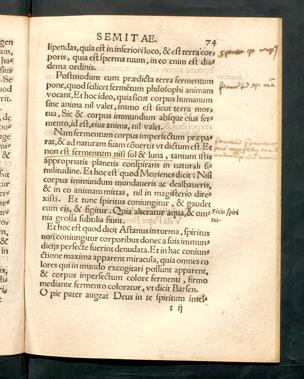 SEMITAE. 74
lipendas, quia est in inferiori loco, & est terra cor-
poris, quia est sperma tuum, in eo enim est dia-
dema ordinis.
Postmodum cum prædicta terra fermentum
pone, quod scilicet fermētum philosophi animam
vocant, Et hoc ideo, quia sicut corpus humanum
sine anima nil valet, immo est sicut terra mor-
tua, Sic & corpus immundum absque eius fer-
mento, id est, eius anima, nil valet.
Nam fermentum corpus imperfectum præpa-
rat, & ad naturam suam cōuertit vt dictum est. Et
non est fermentum nisi sol & luna, tantum istis
appropriatis planetis conspirans in naturali si-
militudine. Et hoc est quod Morienes dicit: Nisi
corpus immundum mundaueris ac dealbaueris,
& in eo animam mittas, nil in magisterio dire-
xisti. Et tunc spiritus coniungitur, & gaudet
cum eis, & figitur. Quia alteratur aqua, & om-
nia grossa subtilia fiunt.
Et hoc est quod dicit Astanus in turma, spiritus
non coniungitur corporibus donec a suis immun-
dicijs perfecte fuerint denudata. Et in hac coniun-
ctione maxima apparent miracula, quia omnes co
lores qui in mundo excogitari possunt apparent,
& corpus inperfectum colore fermenti, firmo
mediante fermento coloratur, vt dicit Barsen.
O pie pater augeat Deus in te spiritum intel-
t ij
Fictio spiri
tus